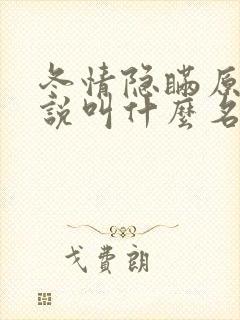 冬情隐瞒原
說叫什麼名
戈費朗